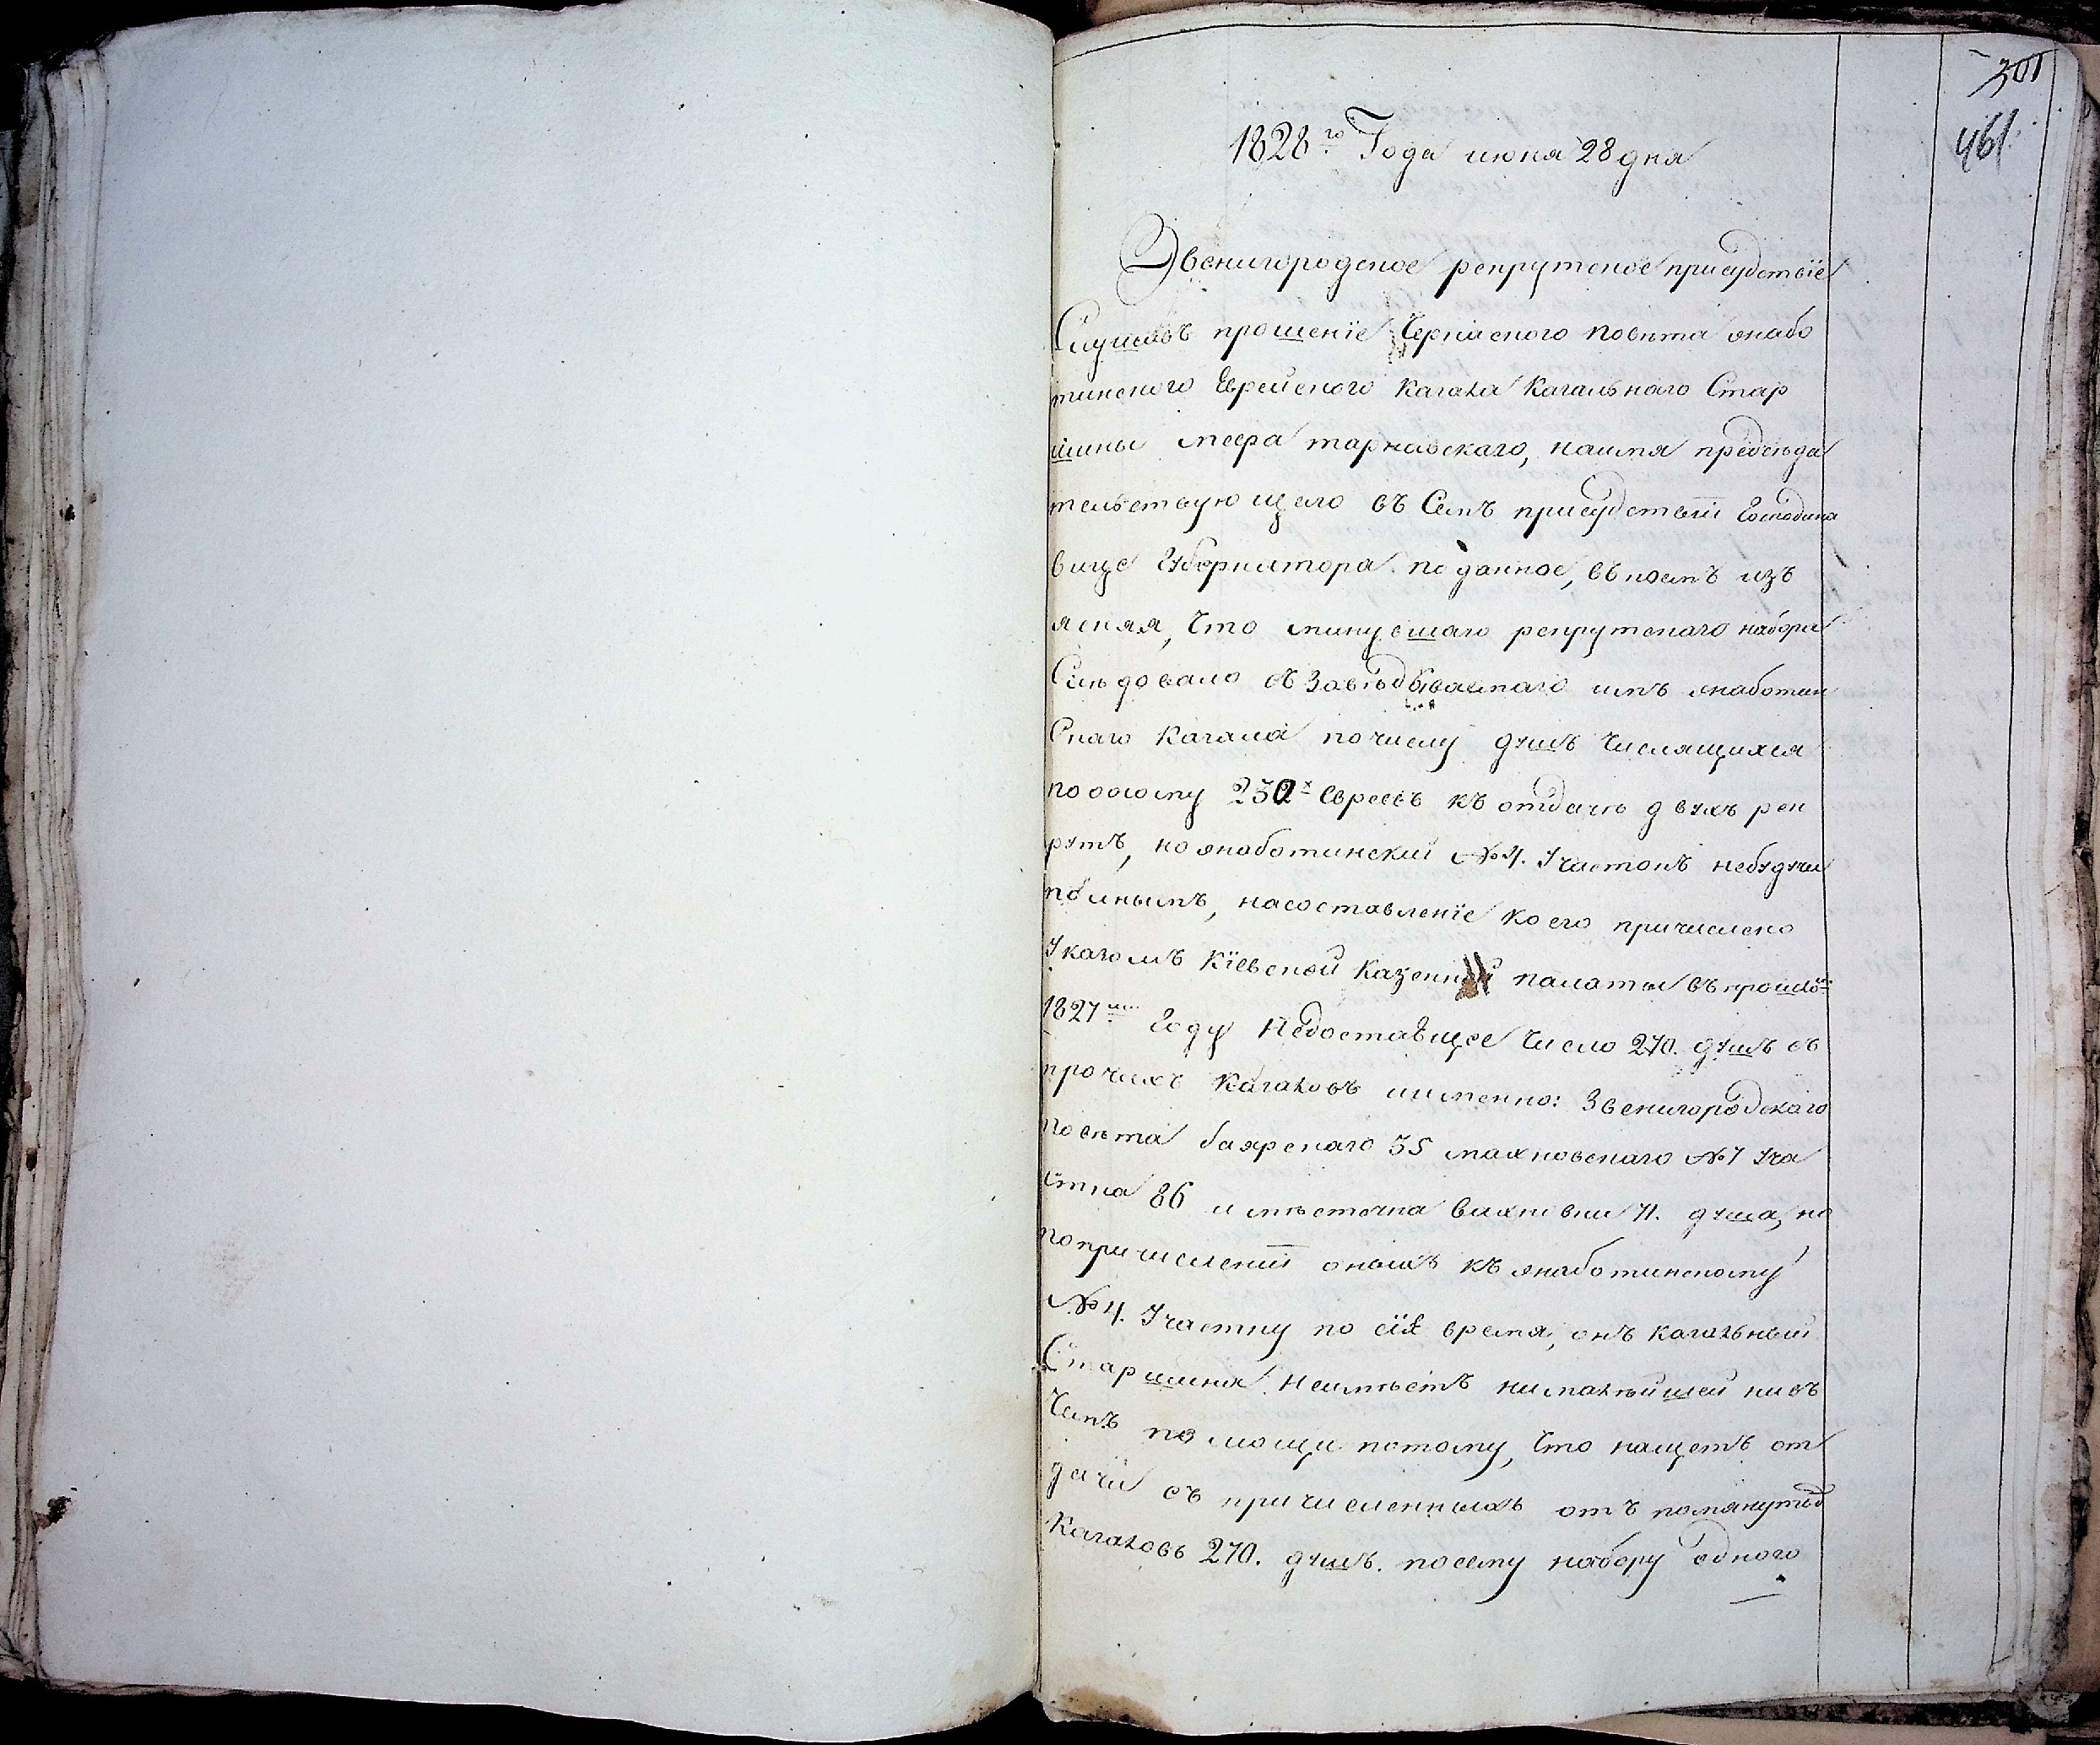 301
461
1828го Года июня 28 дня
Звенигородское рекрутское присудствіе
Слушавъ прошеніе Черкаского повѣта Жабо
тинского Еврейского Кагала Кагальнаго Стар
шины Меера Тарнавскаго, наимя предсѣда
тельствующаго въ Семъ присудствіи Господина
вице Губернатора поданное, въ коемъ изъ
ясняя, что минувшаго рекрутскаго набора
Слѣдовало съ Завѣдываемаго имъ Жаботин
Скаго Кагала по числу душъ Числящихся
по оному 232х Евреевъ къ отдачѣ двухъ рек
рутъ, но Жаботинский №4. Участокъ небудучи
полнымъ, на составленіе коего причислено
Указомъ Кіевской Казенной палаты въ прошлом
1827м Году Недостающее Число 270. душъ съ
прочихъ Кагаловъ имменно: Звенигородскаго
повѣта баярскаго 35 махновскаго №1 Уча
стка 86 и мѣстечка вахновки 71. душа, но
по причисленіи оныхъ къ Жаботинскому
№4. Участку по сіе время, онъ Кагальный
Старшина. Неимѣетъ ни малѣйшей ни въ
Чемъ помощи потому, Что нащетъ от
дачи съ причисленныхъ отъ помянутыхъ
Кагаловъ 270. душъ. по сему набору одного